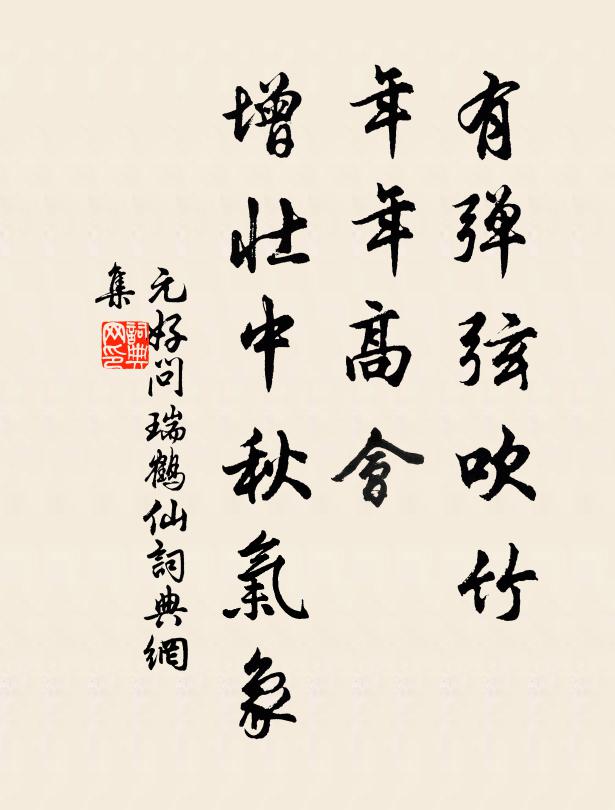 有弹弦吹竹
年年高會
增壮中秋氣象
元好问瑞鶴仙詞典網
集
詞典網印